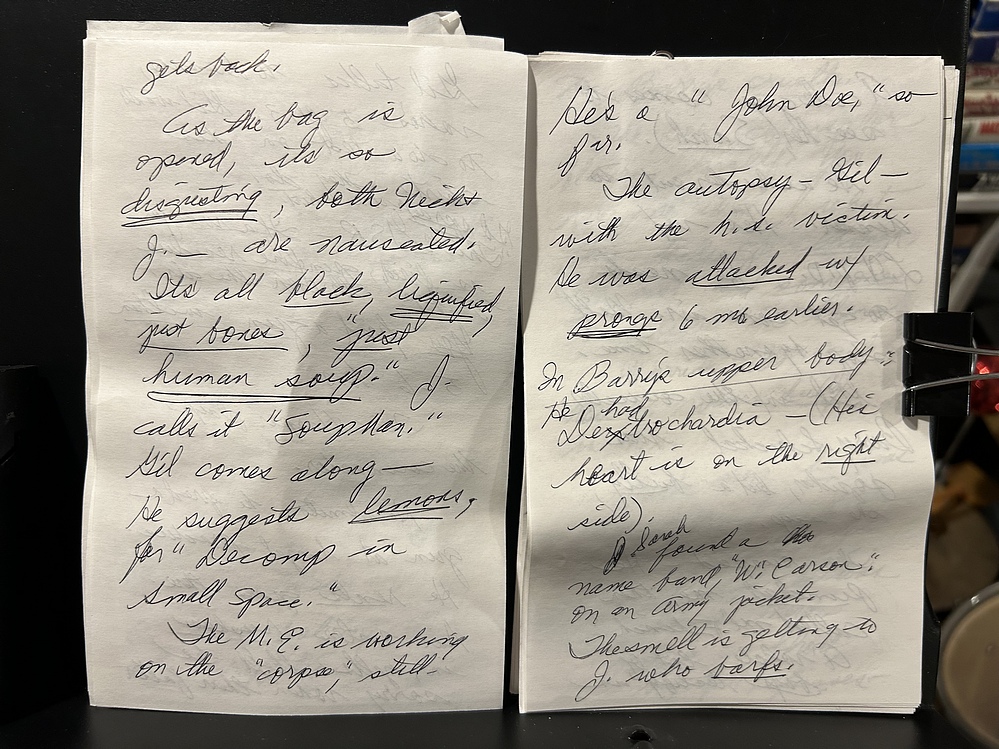 gets back.
As the bag is
opened, it's so
disgusting, both Nick +
J. — are nauseated.
It's all black, liquified,
just bones, "just
human soup." J.
calls it "Soupman."
Gil comes along —
He suggests lemons,
for "Decomp in
Small Space."
The M.E. is working
on the "corpse," still -
He's a "John Doe," so
far.
The autopsy - Gil -
with the h.s. victim.
He was attacked w/
prongs 6 mo earlier.
In Barry's upper body:
He had
Dextrochardia - (His
heart is on the right
side).
Sarah found a
name band, "W. Carson".
on an army jacket.
The smell is getting to
J. who barfs.